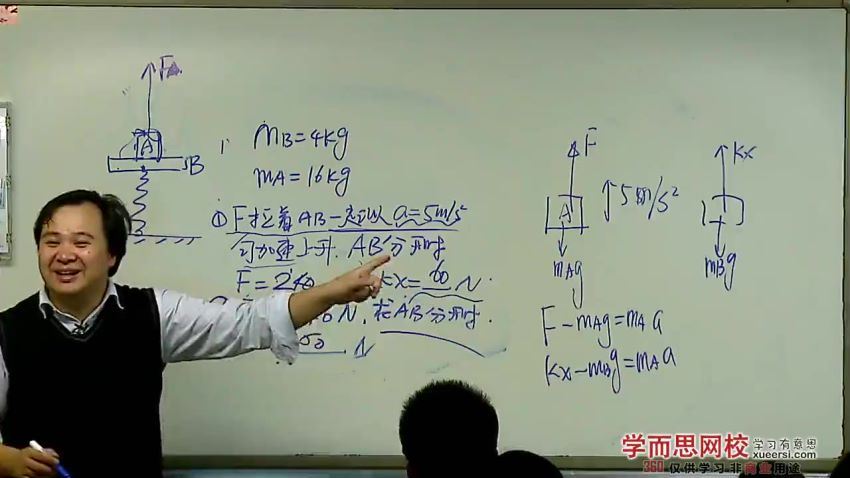 F
A
B
mB=4kg
mA=16kg
① F拉着AB一起以a=5m/s²
匀加速上升. AB分开时
F=240
kx=60 N.
N. 在AB分开时.
N
F
A
↑5m/s²
mAg
kx
mBg
F-mAg=mAa
kx-mBg=mAa
学而思网校 学习有意思
xueersi.com
360 仅供学习·非商业用途